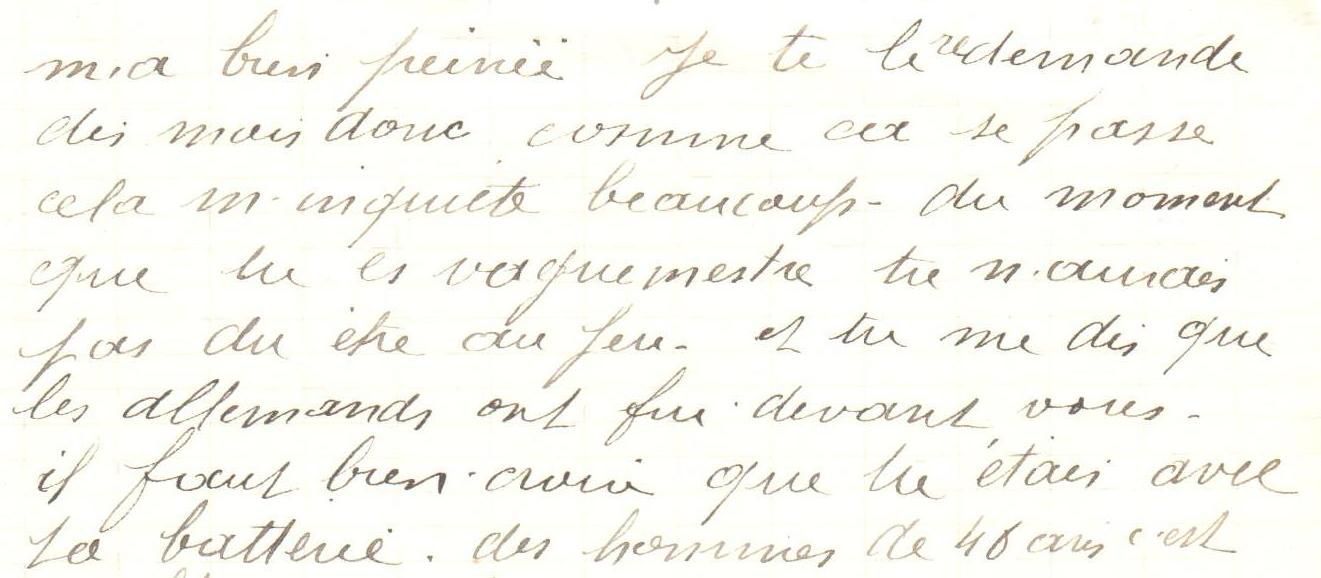 m.a bien peinée Je te le redemande
dis mois donc comme cà se passe
cela m.inquiète beaucoup - du moment
que tu es vaguemestre tu n.aurais
pas du être au feu - et tu me dis que
les allemands ont fui devant vous -
il faut bien croire que tu étais avec
ta batterie . des hommes de 46 ans c'est